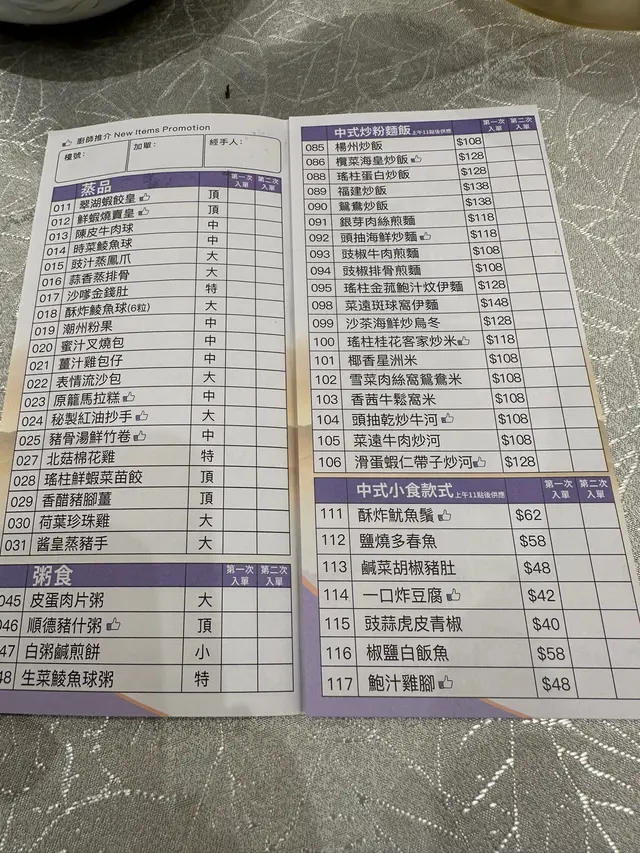 廚師推介 New Items Promotion
檯號: 加單: 經手人:
蒸品 第一次入單 第二次入單
011 翠湖蝦餃皇 頂
012 鮮蝦燒賣皇 頂
013 陳皮牛肉球 中
014 時菜鯪魚球 中
015 豉汁蒸鳳爪 大
016 蒜香蒸排骨 大
017 沙嗲金錢肚 特
018 酥炸鯪魚球(6粒) 大
019 潮州粉果 中
020 蜜汁叉燒包 中
021 薑汁雞包仔 中
022 表情流沙包 大
023 原籠馬拉糕 中
024 秘製紅油抄手 大
025 豬骨湯鮮竹卷 中
027 北菇棉花雞 特
028 瑤柱鮮蝦菜苗餃 頂
029 香醋豬腳薑 頂
030 荷葉珍珠雞 大
031 酱皇蒸豬手 大
粥食 第一次入單 第二次入單
045 皮蛋肉片粥 大
046 順德豬什粥 頂
47 白粥鹹煎餅 小
48 生菜鯪魚球粥 特
中式炒粉麵飯 上午11點後供應 第一次入單 第二次入單
085 楊州炒飯 $108
086 欖菜海皇炒飯 $128
088 瑤柱蛋白炒飯 $128
089 福建炒飯 $138
090 鴛鴦炒飯 $138
091 銀芽肉絲煎麵 $118
092 頭抽海鮮炒麵 $118
093 豉椒牛肉煎麵 $108
094 豉椒排骨煎麵 $108
095 瑤柱金菰鮑汁炆伊麵 $128
098 菜遠斑球窩伊麵 $148
099 沙茶海鮮炒烏冬 $128
100 瑤柱桂花客家炒米 $118
101 椰香星洲米 $108
102 雪菜肉絲窩鴛鴦米 $108
103 香茜牛鬆窩米 $108
104 頭抽乾炒牛河 $108
105 菜遠牛肉炒河 $108
106 滑蛋蝦仁帶子炒河 $128
中式小食款式 上午11點後供應 第一次入單 第二次入單
111 酥炸魷魚鬚 $62
112 鹽燒多春魚 $58
113 鹹菜胡椒豬肚 $48
114 一口炸豆腐 $42
115 豉蒜虎皮青椒 $40
116 椒鹽白飯魚 $58
117 鮑汁雞腳 $48